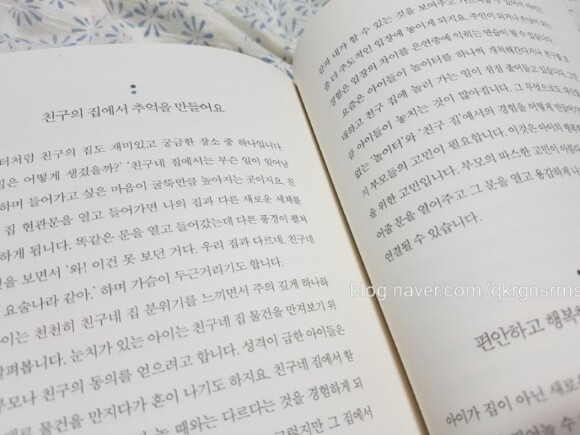 친구의 집에서 추억을 만들어요
터처럼 친구의 집도 재미있고 궁금한 장소 중 하나입니다.
은 어떻게 생겼을까?' '친구네 집에서는 무슨 일이 일어날
하며 들어가고 싶은 마음이 굴뚝만큼 높아지는 곳이지요. 친
집 현관문을 열고 들어가면 나의 집과 다른 새로운 세계를
하게 됩니다. 똑같은 문을 열고 들어갔는데 다른 풍경이 펼쳐
을 보면서 '와! 이건 못 보던 거다. 우리 집과 다르네. 친구네
요술나라 같아.' 하며 가슴이 두근거리기도 합니다.
이는 천천히 친구네 집 분위기를 느끼면서 주의 깊게 하나하
살펴봅니다. 눈치가 있는 아이는 친구네 집 물건을 만져보기 위
부모나 친구의 동의를 얻으려고 합니다. 성격이 급한 아이들은
대로 물건을 만지다가 혼이 나기도 하지요. 친구네 집에서 할
놀 때와는 다르다는 것을 경험하게 되
그렇지만 그 집에서
감과 내가 할 수 있는 것을 보여주고
좀 더 주도적인 입장에 놓이게 되지요. 주인이
경험은 입장의 차이를 은연중에 이해하는 연습이 될 수
요즘은 아이들이 놀이터를 하나씩
대하고 친구 집에 놀러 가는 일이 점점 줄어들고 있습니다.
큼 아이들이 놓치는 것이 많아집니다. 그 무엇으로도
없는 '놀이터'와 '친구 집'에서의 경험을 어떻게 만들어
지 부모들의 고민이 필요합니다. 이것은 아이의 행복
을 위한 고민입니다. 부모의 따스한 고민이 아이를
어줄 문을 열어주고 그 문을 열고 용감하게 나
연결될 수 있습니다.
blog.naver.com/qkrgnsrms
편안하고 행복한
아이가 집이 아닌 새로운